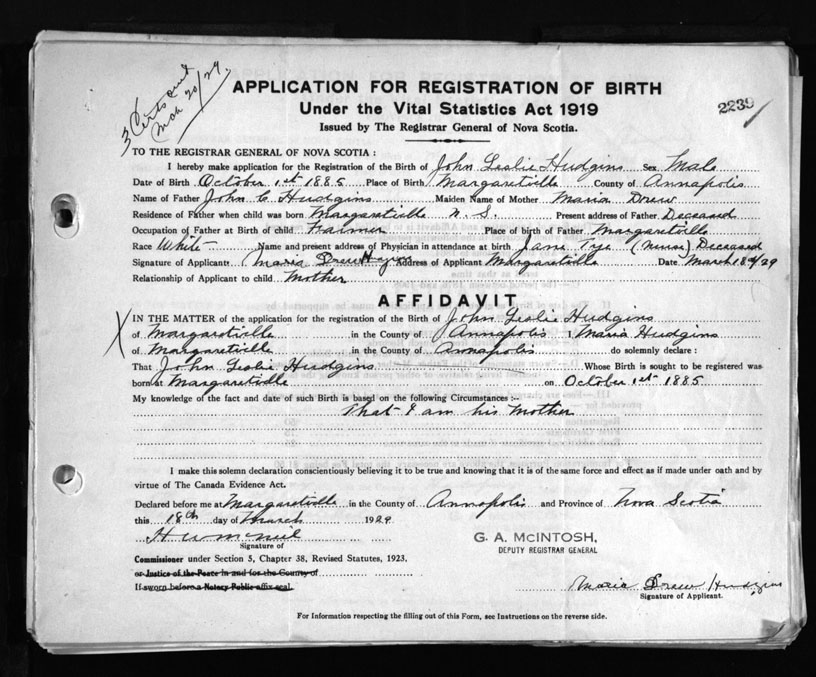 3 Certs
Mch 20/29.
APPLICATION FOR REGISTRATION OF BIRTH
Under the Vital Statistics Act 1919
Issued by The Registrar General of Nova Scotia.
2239
TO THE REGISTRAR GENERAL OF NOVA SCOTIA :
I hereby make application for the Registration of the Birth of John Leslie Hudgins Sex Male
Date of Birth October 1st 1885 Place of Birth Margaretville County of Annapolis
Name of Father John C Hudgins Maiden Name of Mother Maria Drew
Residence of Father when child was born Margaretville N. S. Present address of Father Deceased
Occupation of Father at Birth of child Farmer Place of birth of Father Margaretville
Race White Name and present address of Physician in attendance at birth Jane Tye (Nurse) Deceased
Signature of Applicants Maria Drew Address of Applicant Margaretville Date March 18th/29
Relationship of Applicant to child Mother
AFFIDAVIT
X IN THE MATTER of the application for the registration of the Birth of John Leslie Hudgins
of Margaretville in the County of Annapolis I, Maria Hudgins
of Margaretville in the County of Annapolis do solemnly declare :
That John Leslie Hudgins Whose Birth is sought to be registered was
born at Margaretville on October 1st 1885
My knowledge of the fact and date of such Birth is based on the following Circumstances :--
That I am his Mother
I make this solemn declaration conscientiously believing it to be true and knowing that it is of the same force and effect as if made under oath and by
virtue of The Canada Evidence Act.
Declared before me at Margaretville in the County of Annapolis and Province of Nova Scotia
this 18th day of March 1929
H W McNeil
Signature of
G. A. McINTOSH,
DEPUTY REGISTRAR GENERAL
Commissioner under Section 5, Chapter 38, Revised Statutes, 1923.
or Justice of the Peace in and for the County of
If sworn before a Notary Public affix seal.
Maria Drew Hudgins
Signature of Applicant.
For Information respecting the filling out of this Form, see Instructions on the reverse side.